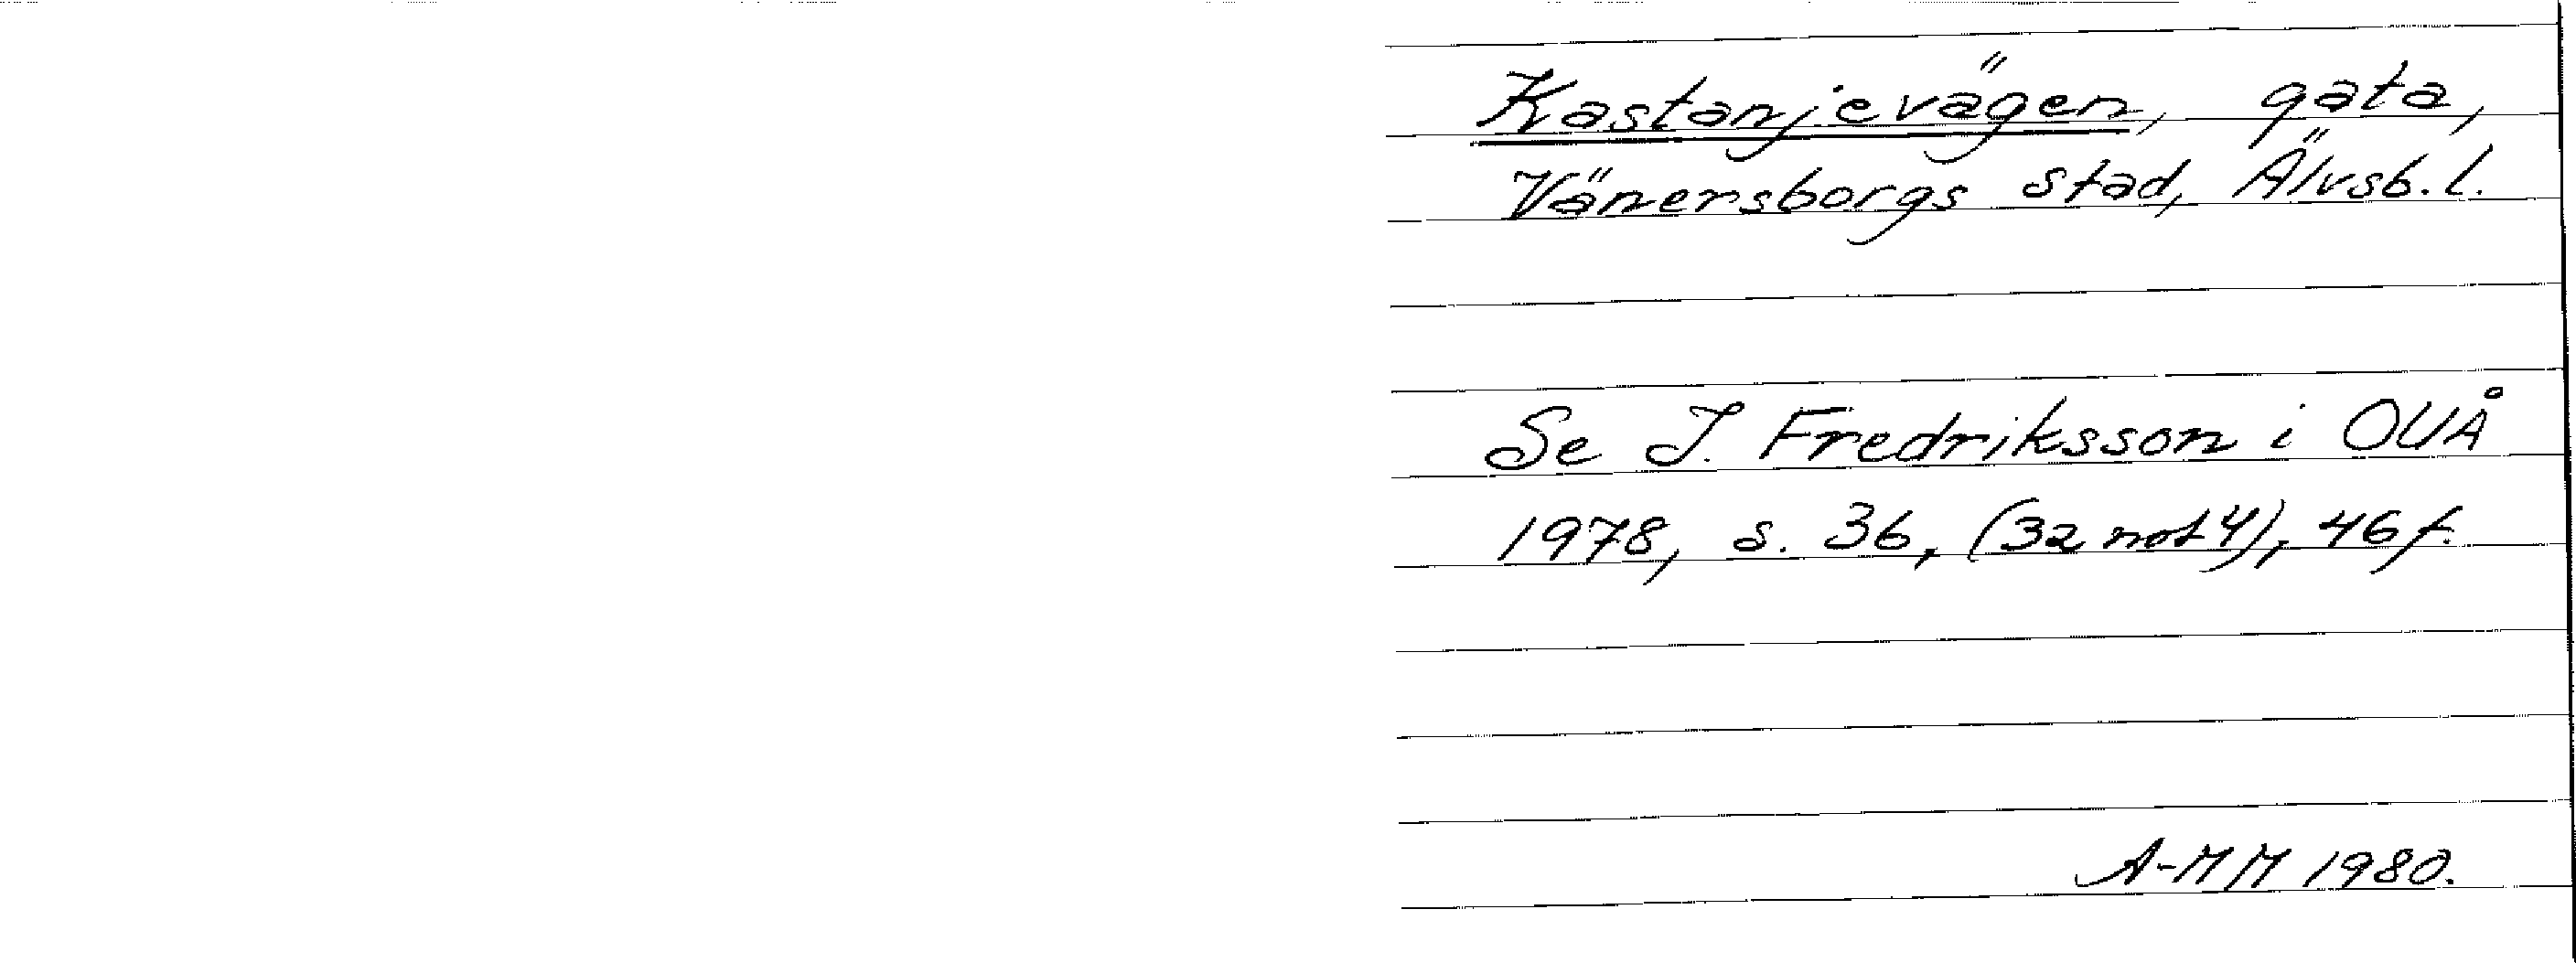 Kastanjevägen, gata,
Vänersborgs stad, Älvsb. l.
Se I. Fredriksson i OUÅ
1978, s. 36, (32 not 4), 46 f.
A-MM 1980.